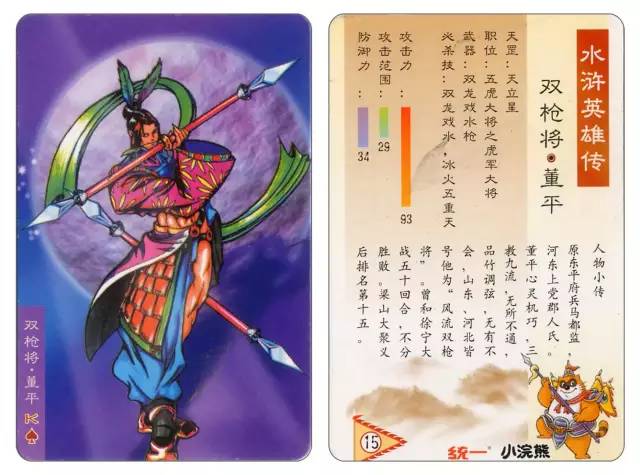 双枪将·董平
K
水浒英雄传
双枪将·董平
天罡:天立星
职位:五虎大将之虎军大将
武器:双龙戏水枪
必杀技:双龙戏水,冰火五重天
攻击力:
93
攻击范围:
29
防御力:
34
人物小传
原东平府兵马都监,
河东上党郡人氏。
董平心灵机巧,三
教九流,无所不通,
品竹调弦,无有不
会,山东、河北皆
号他为“风流双枪
将”。曾和徐宁大
战五十回合,不分
胜败。梁山大聚义
后排名第十五。
15
统一 小浣熊